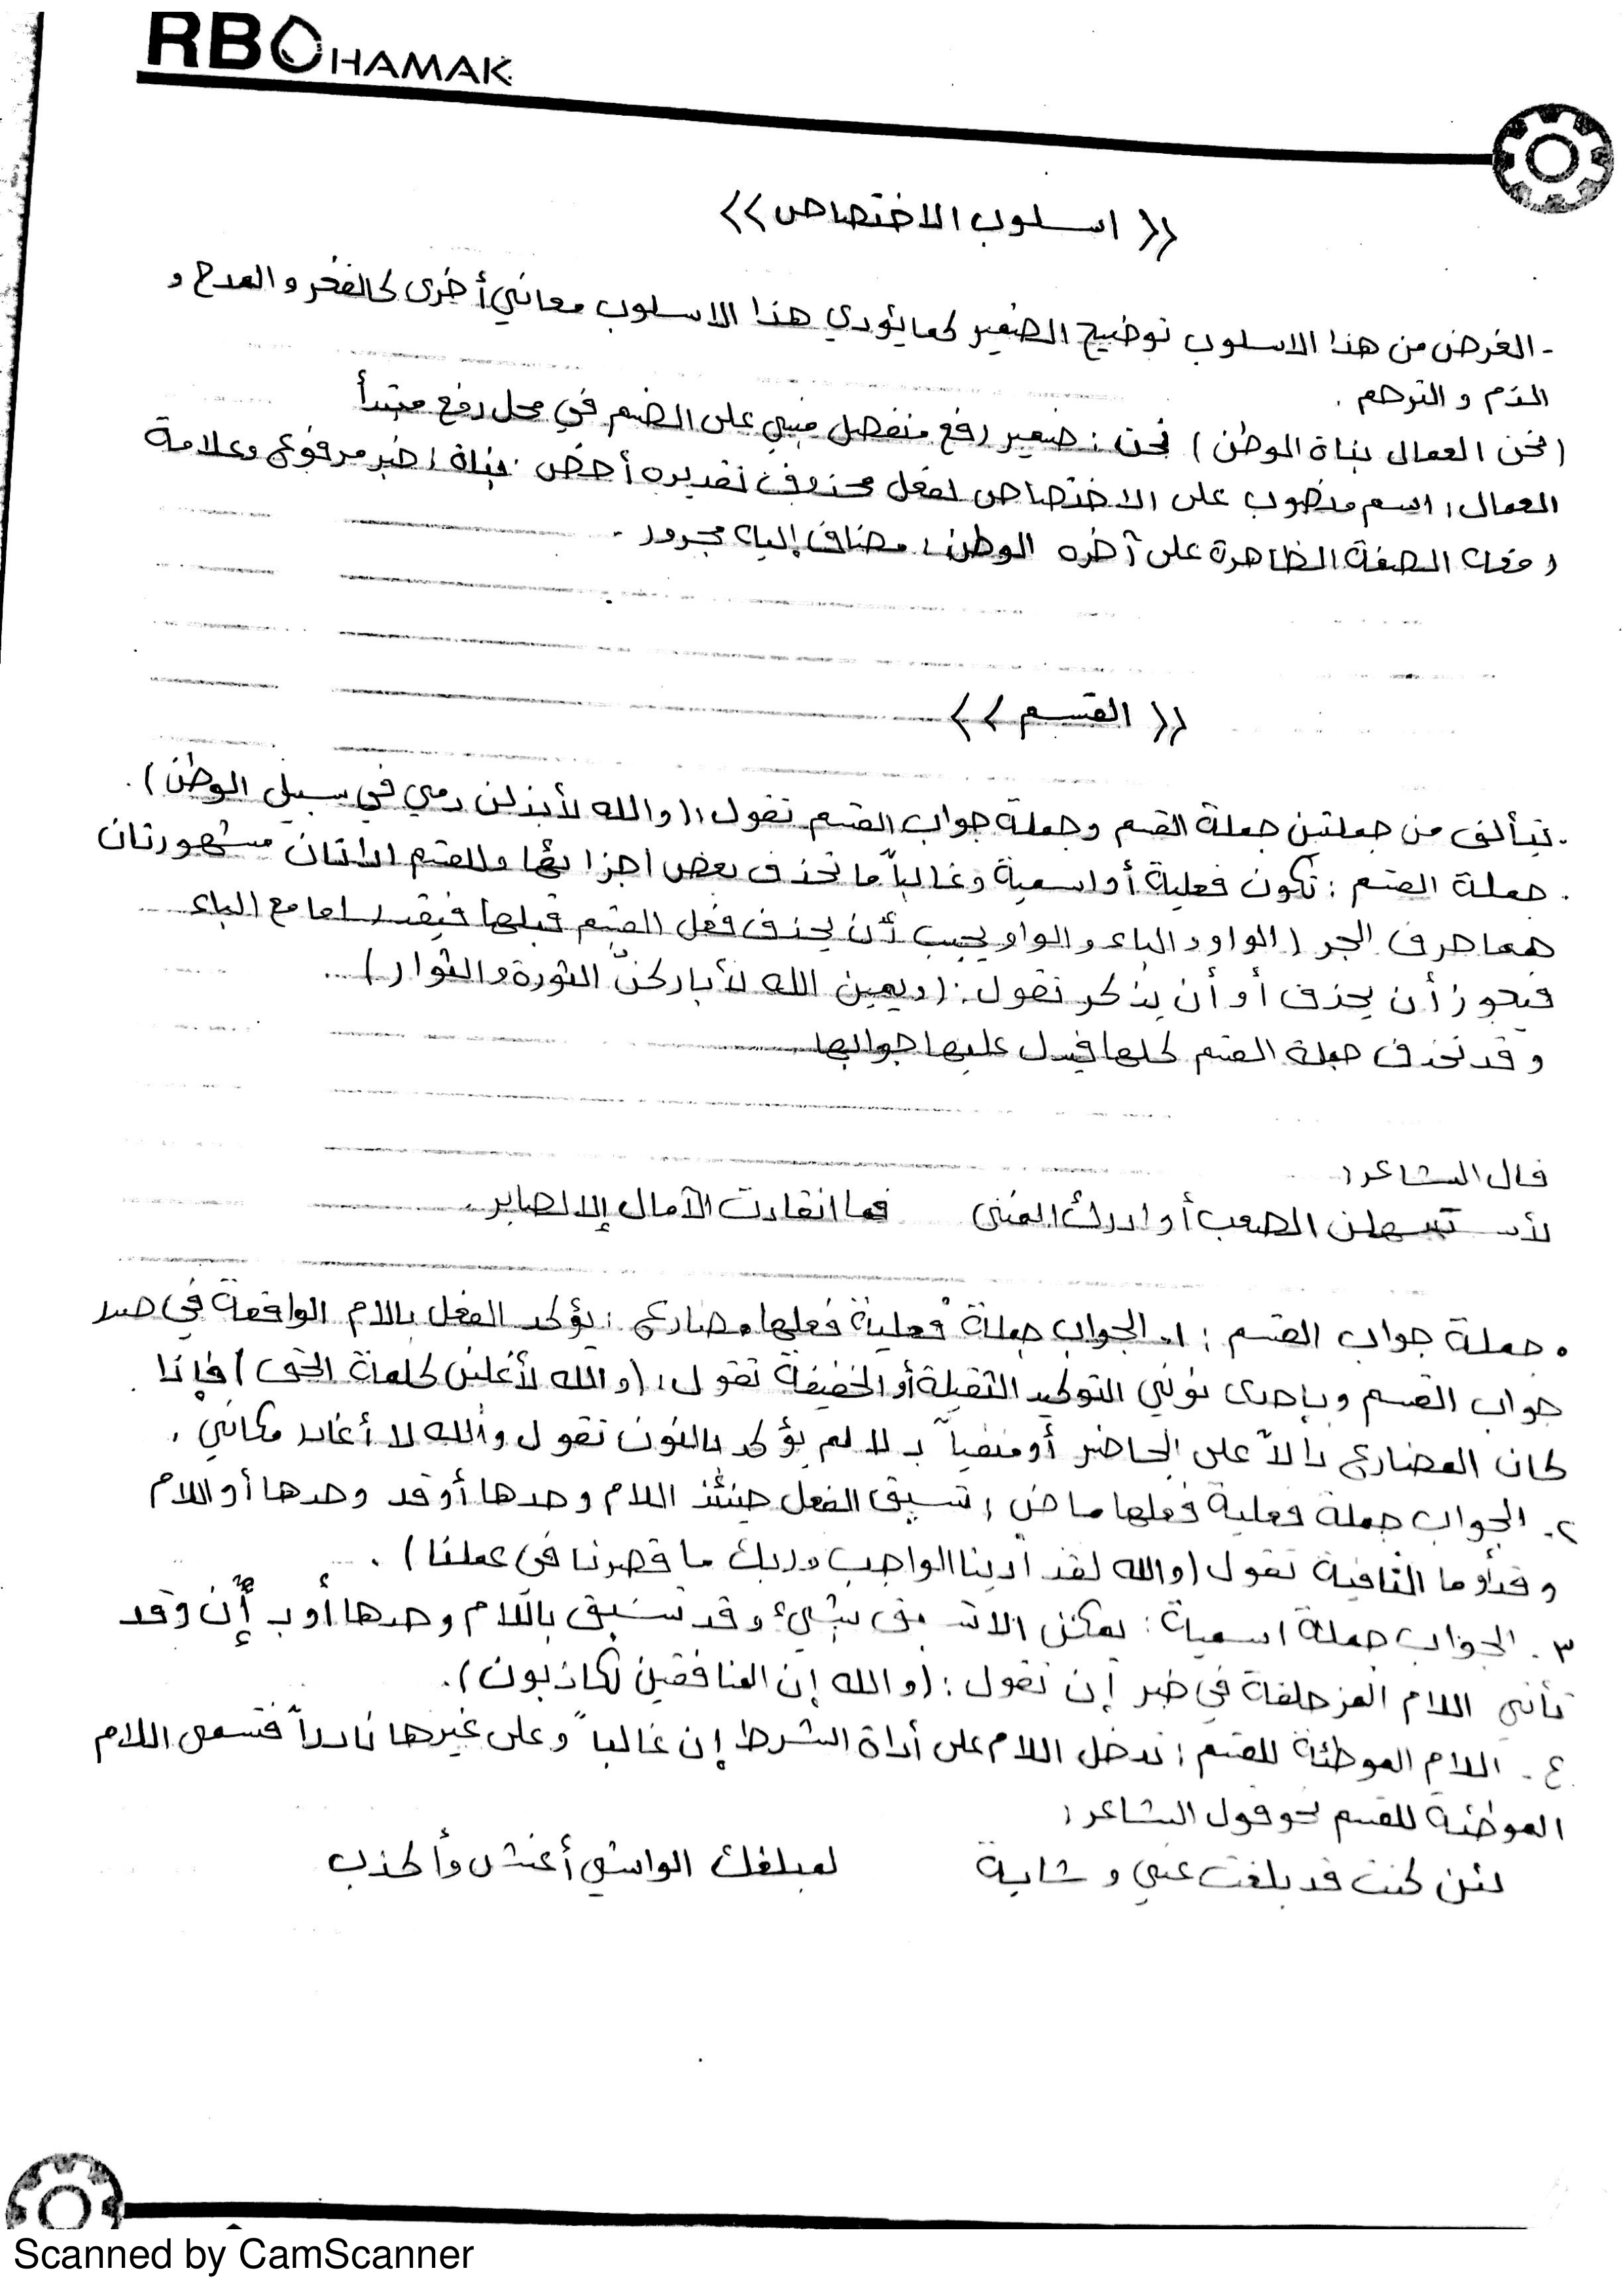 RBOHAMAK
<< اسلوب الاختصاص >>
- الغرض من هذا الاسلوب توضيح الضمير كما يؤدي هذا الاسلوب معاني أخرى كالفخر و المدح و
الذم و الترحم .
(نحن العمال بناة الوطن) نحن : ضمير رفع منفصل مبني على الضم في محل رفع مبتدأ
العمال : اسم منصوب على الاختصاص لفعل محذوف تقديره أخص بناة : خبر مرفوع وعلامة
رفعه الضمة الظاهرة على آخره الوطن : مضاف إليه مجرور .
<< القسم >>
. تتألف من جملتين جملة القسم وجملة جواب القسم تقول : (والله لأبذلن دمي في سبيل الوطن) .
. جملة القسم : تكون فعلية أو اسمية وغالباً ما تحذف بعض اجزائها وللقسم اداتان مشهورتان
هما حرف الجر (الواو والباء والواو يجب أن يحذف فعل القسم قبلها فيقدر اما مع الباء
فيجوز أن يحذف أو أن يذكر تقول : (ويمين الله لأباركنّ الثورة والثوار) ..
وقد تحذف جملة القسم كلها فيدل عليها جوابها
قال الشاعر :
لأستسهلن الصعب أو ادرك المنى فما انقادت الآمال إلا لصابر .
. جملة جواب القسم : ١. الجواب جملة فعلية فعلها مضارع : يؤكد الفعل بالام الواقعة في صدر
جواب القسم وبإحدى نوني التوكيد الثقيلة أو الخفيفة تقول : (والله لأعلين كلمة الحق) فإذا
كان المضارع دالاً على الحاضر أو منفياً بـ لا لم يؤكد بالنون تقول والله لا أغادر مكاني .
٢. الجواب جملة فعلية فعلها ماضٍ : تسبق الفعل حينئذ اللام وحدها أو قد وحدها أو اللام
وقد أو ما النافية تقول (والله لقد ادينا الواجب وربك ما قصرنا في عملنا) .
٣. الجواب جملة اسمية : يمكن الا تسبق بشيء وقد تسبق باللام وحدها أو بـ إنّ وقد
تأتي اللام المزحلقة في خبر إن تقول : (والله إن المنافقين لكاذبون) .
٤. اللام الموطئة للقسم : تدخل اللام على أداة الشرط إن غالباً وعلى غيرها نادراً فتسمى اللام
الموطئة للقسم نحو قول الشاعر :
لئن كنت قد بلغت عني وشاية لمبلغك الواشي أغش وأكذب
Scanned by CamScanner